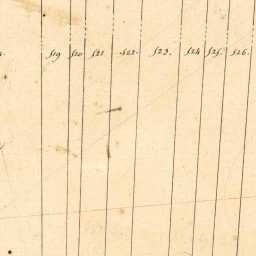 519 520 521 522. 523. 524 525. 526.